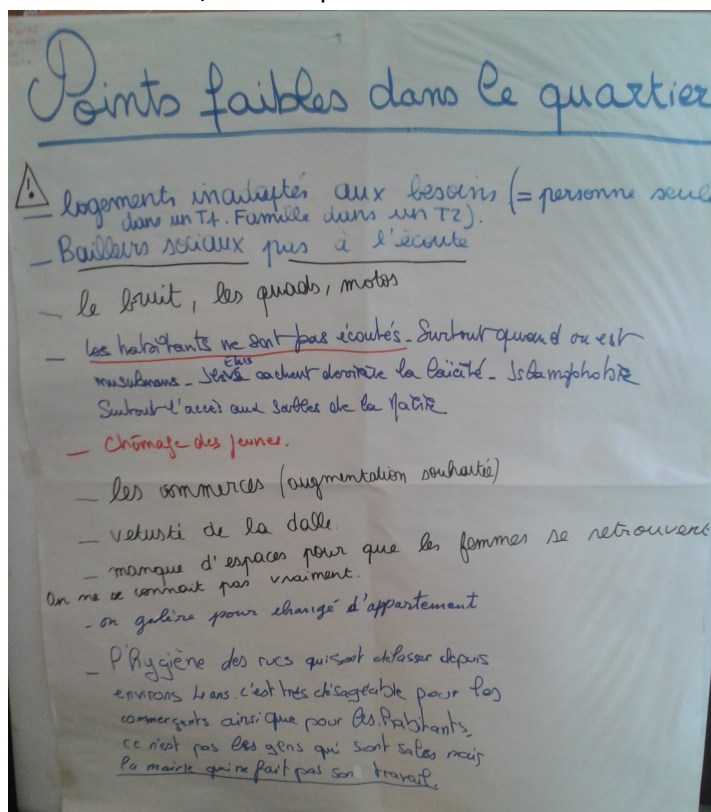 Points faibles dans le quartier
⚠ _ logements inadaptés aux besoins (= personne seule
dans un T4. Famille dans un T2).
_ Bailleurs sociaux pas à l'écoute
_ le bruit, les quads, motos
_ Les habitants ne sont pas écoutés - Surtout quand on est
musulmans - élus cachent derrière la laïcité - Islamophobie
Surtout l'accès aux salles de la Mairie
_ Chômage des jeunes.
_ les commerces (augmentation souhaitié)
_ vetusté de la dalle.
_ manque d'espaces pour que les femmes se retrouvent
On ne se connait pas vraiment.
- on galère pour changé d'appartement
_ l'Hygiène des rues qui sont depuis
environs 4 ans. c'est très disagéable pour les
commerçants ainsi que pour les habitants,
ce n'est pas les gens qui sont sales mais
la mairie qui ne fait pas son travail.